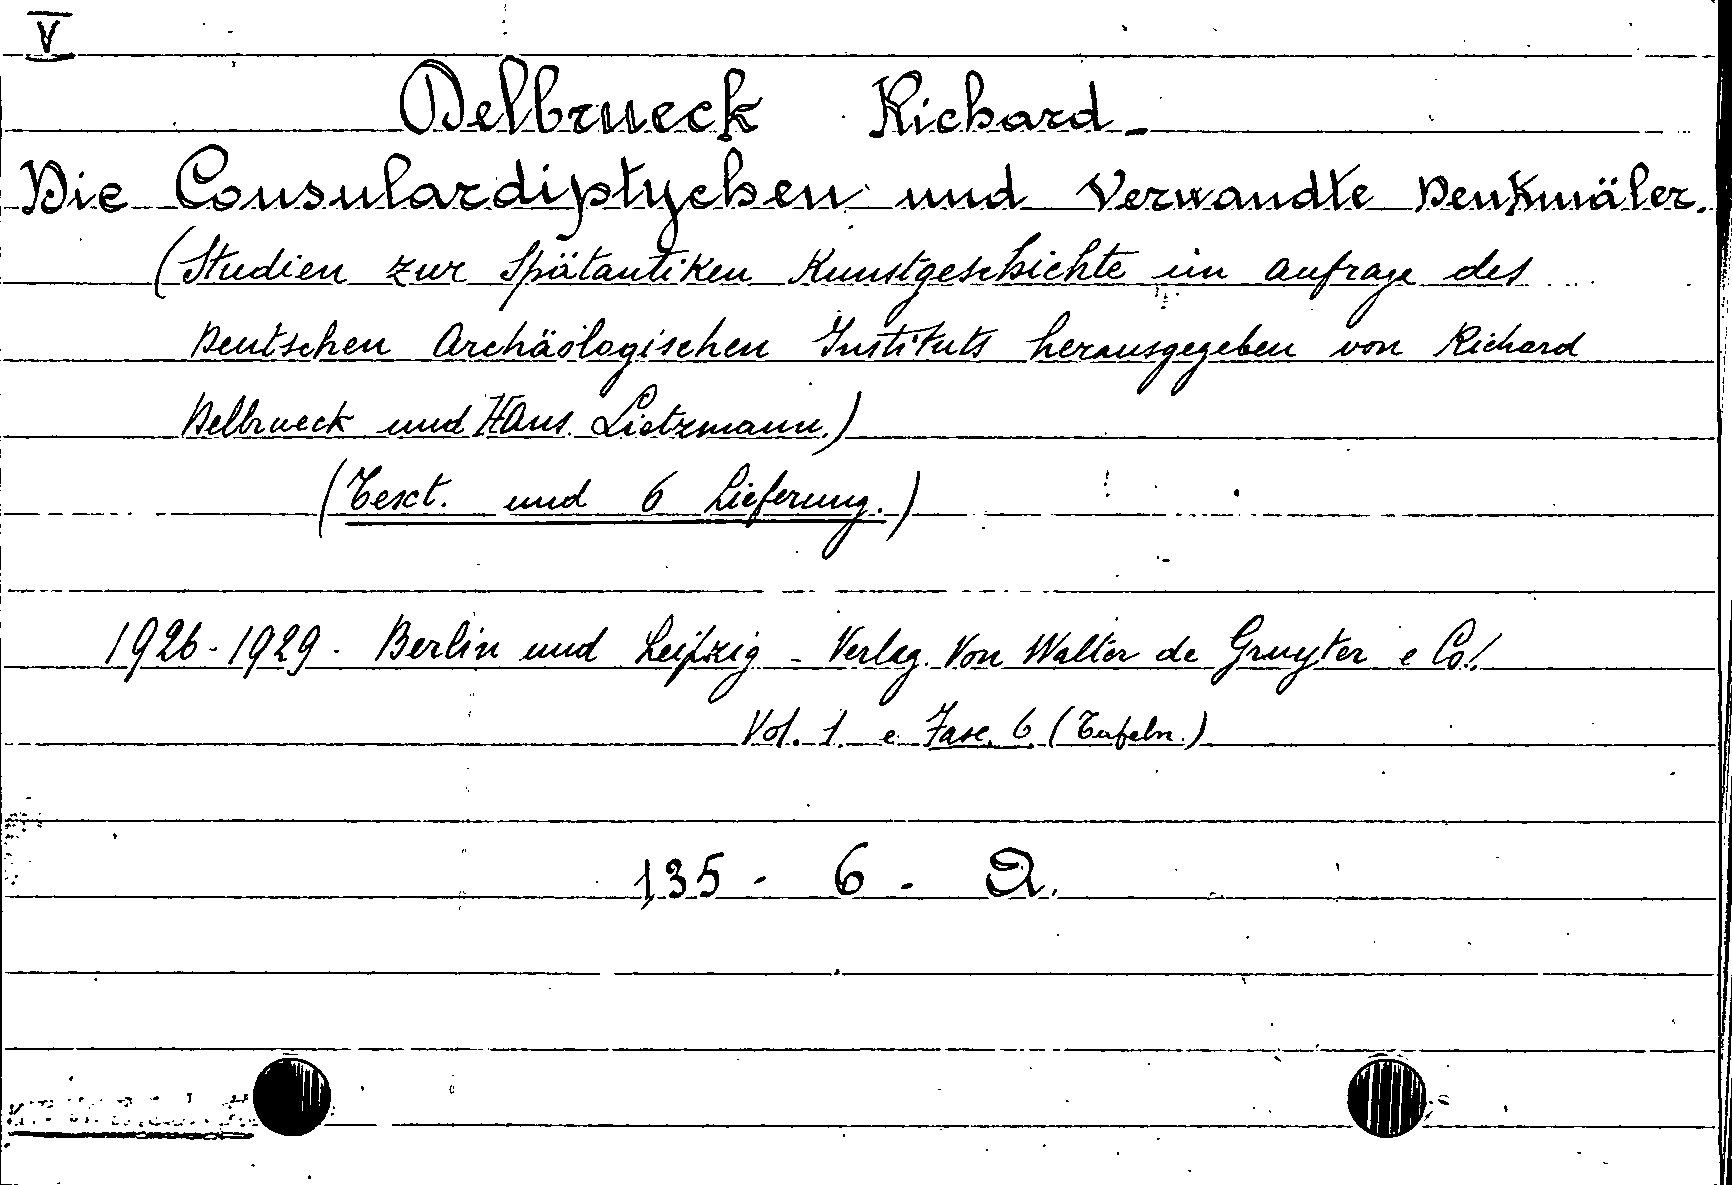 V
Delbrueck Richard.
Die Consulardiptychen und Verwandte Denkmäler.
(Studien zur Spätantiken Kunstgeschichte im Aufrage des
Deutschen Archäologischen Instituts herausgegeben von Richard
Delbrueck und Hans Lietzmann.)
(Texct. und 6 Lieferung.)
1926-1929. Berlin und Leipzig - Verlag Von Walter de Gruyter e Co!
Vol. 1. e Fasc. 6 (Tafeln.)
135 - 6 - D.